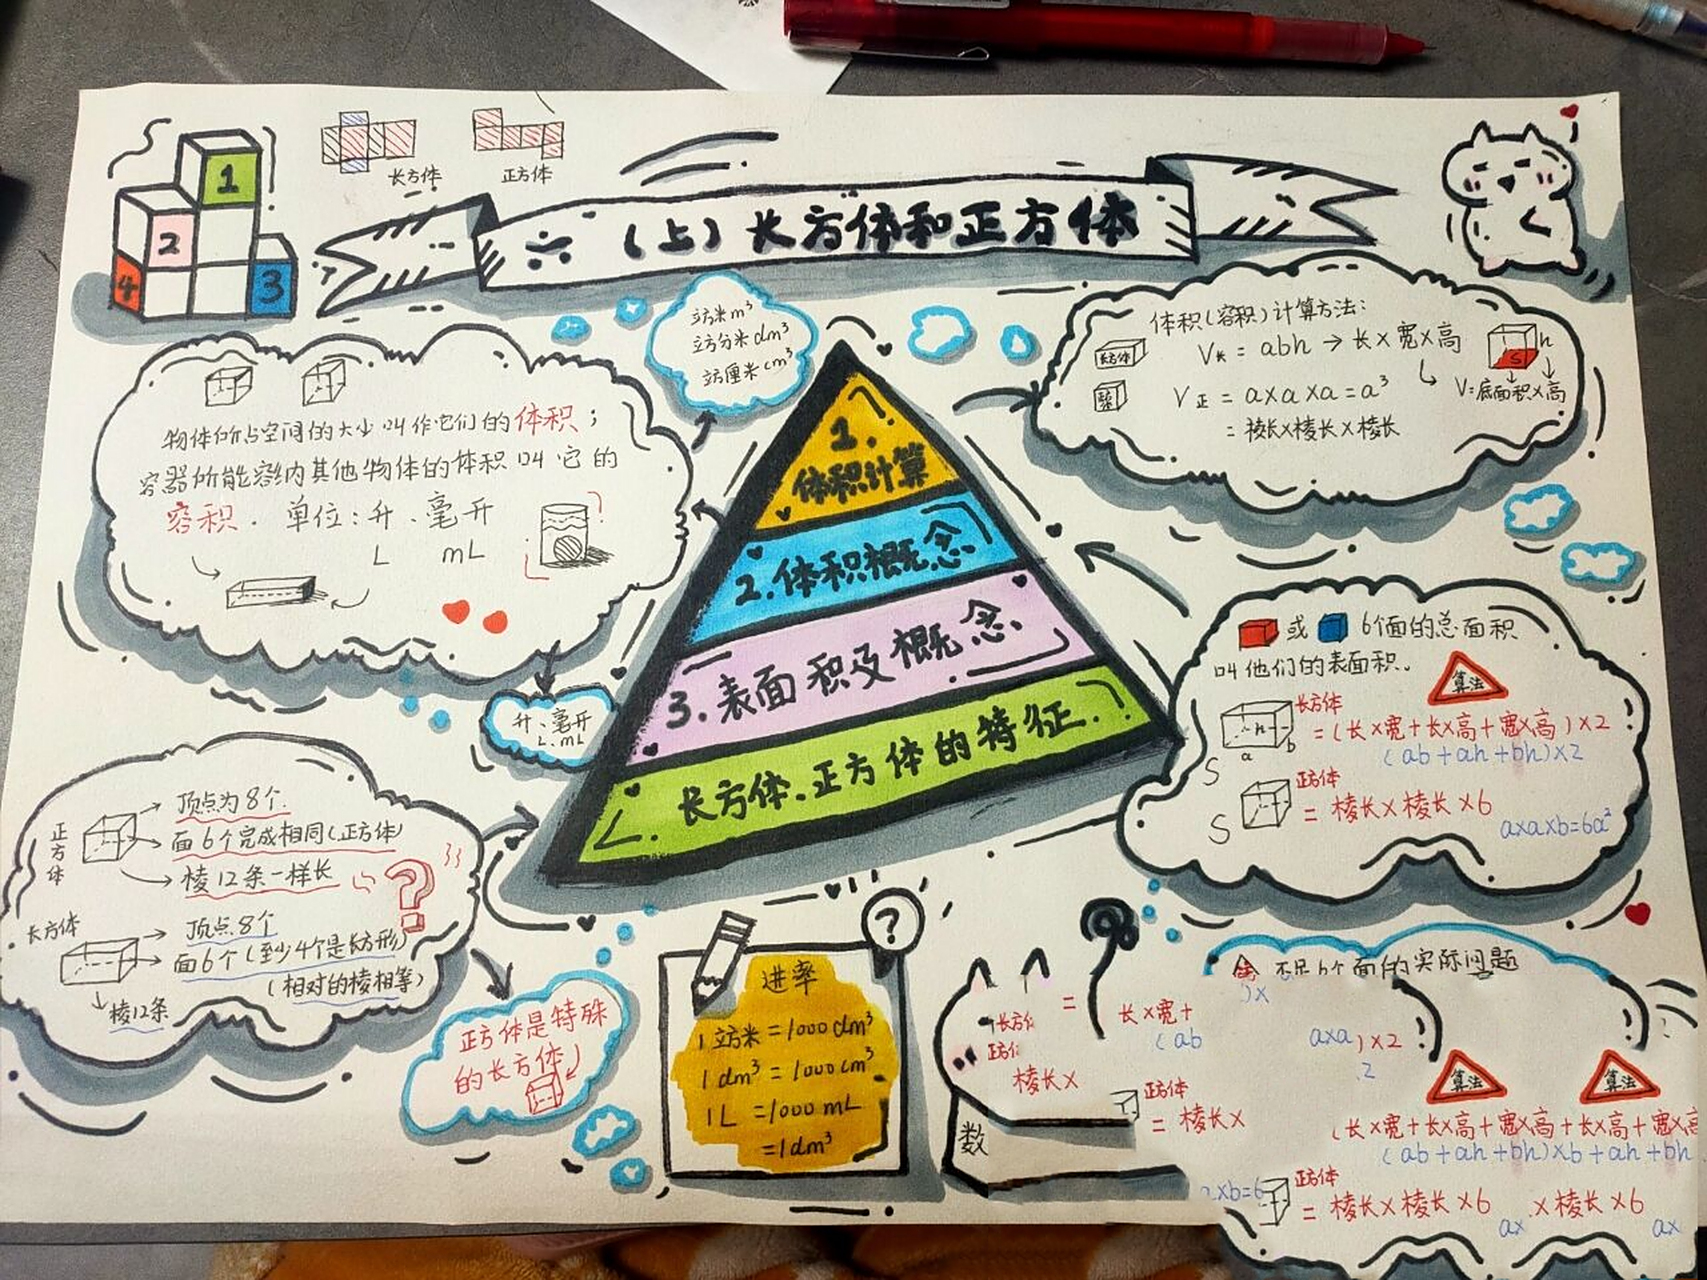 1
2
4
3
长方体
正方体
六(上)长方体和正方体
立方米m³
立方分米dm³
立方厘米cm³
物体所占空间的大少叫作它们的体积;
容器所能容纳其他物体的体积叫它的
容积. 单位:升、毫升
L mL
升、毫升
L、mL
体积(容积)计算方法:
长方体
V长 = abh → 长×宽×高
V正 = a×a×a=a³
= 棱长×棱长×棱长
S
h
V=底面积×高
1.
体积计算
2.体积概念
3.表面积及概念
长方体、正方体的特征.
或 6个面的总面积
叫他们的表面积.
算法
长方体
=(长×宽+长×高+宽×高)×2
(ab+ah+bh)×2
h
a
b
S
正方体
= 棱长×棱长×6
a×a×b=6a²
S
正方体
顶点为8个.
面6个完成相同(正方体)
棱12条一样长
?
长方体
顶点8个
面6个(至少4个是长方形)
(相对的棱相等)
棱12条
正方体是特殊
的长方体
?
进率
1立方米=1000dm³
1dm³=1000cm³
1L=1000mL
=1dm³
不足6个面的实际问题
)×
长方
=
长×宽+
(ab
a×a
)×2
2
正方
棱长×
正方体
= 棱长×
数
算法
算法
(长×宽+长×高+宽×高+长×高+宽×高
(ab+ah+bh)×b+ah+bh
a×b=6
正方体
= 棱长×棱长×6
×棱长×6
a×
a×